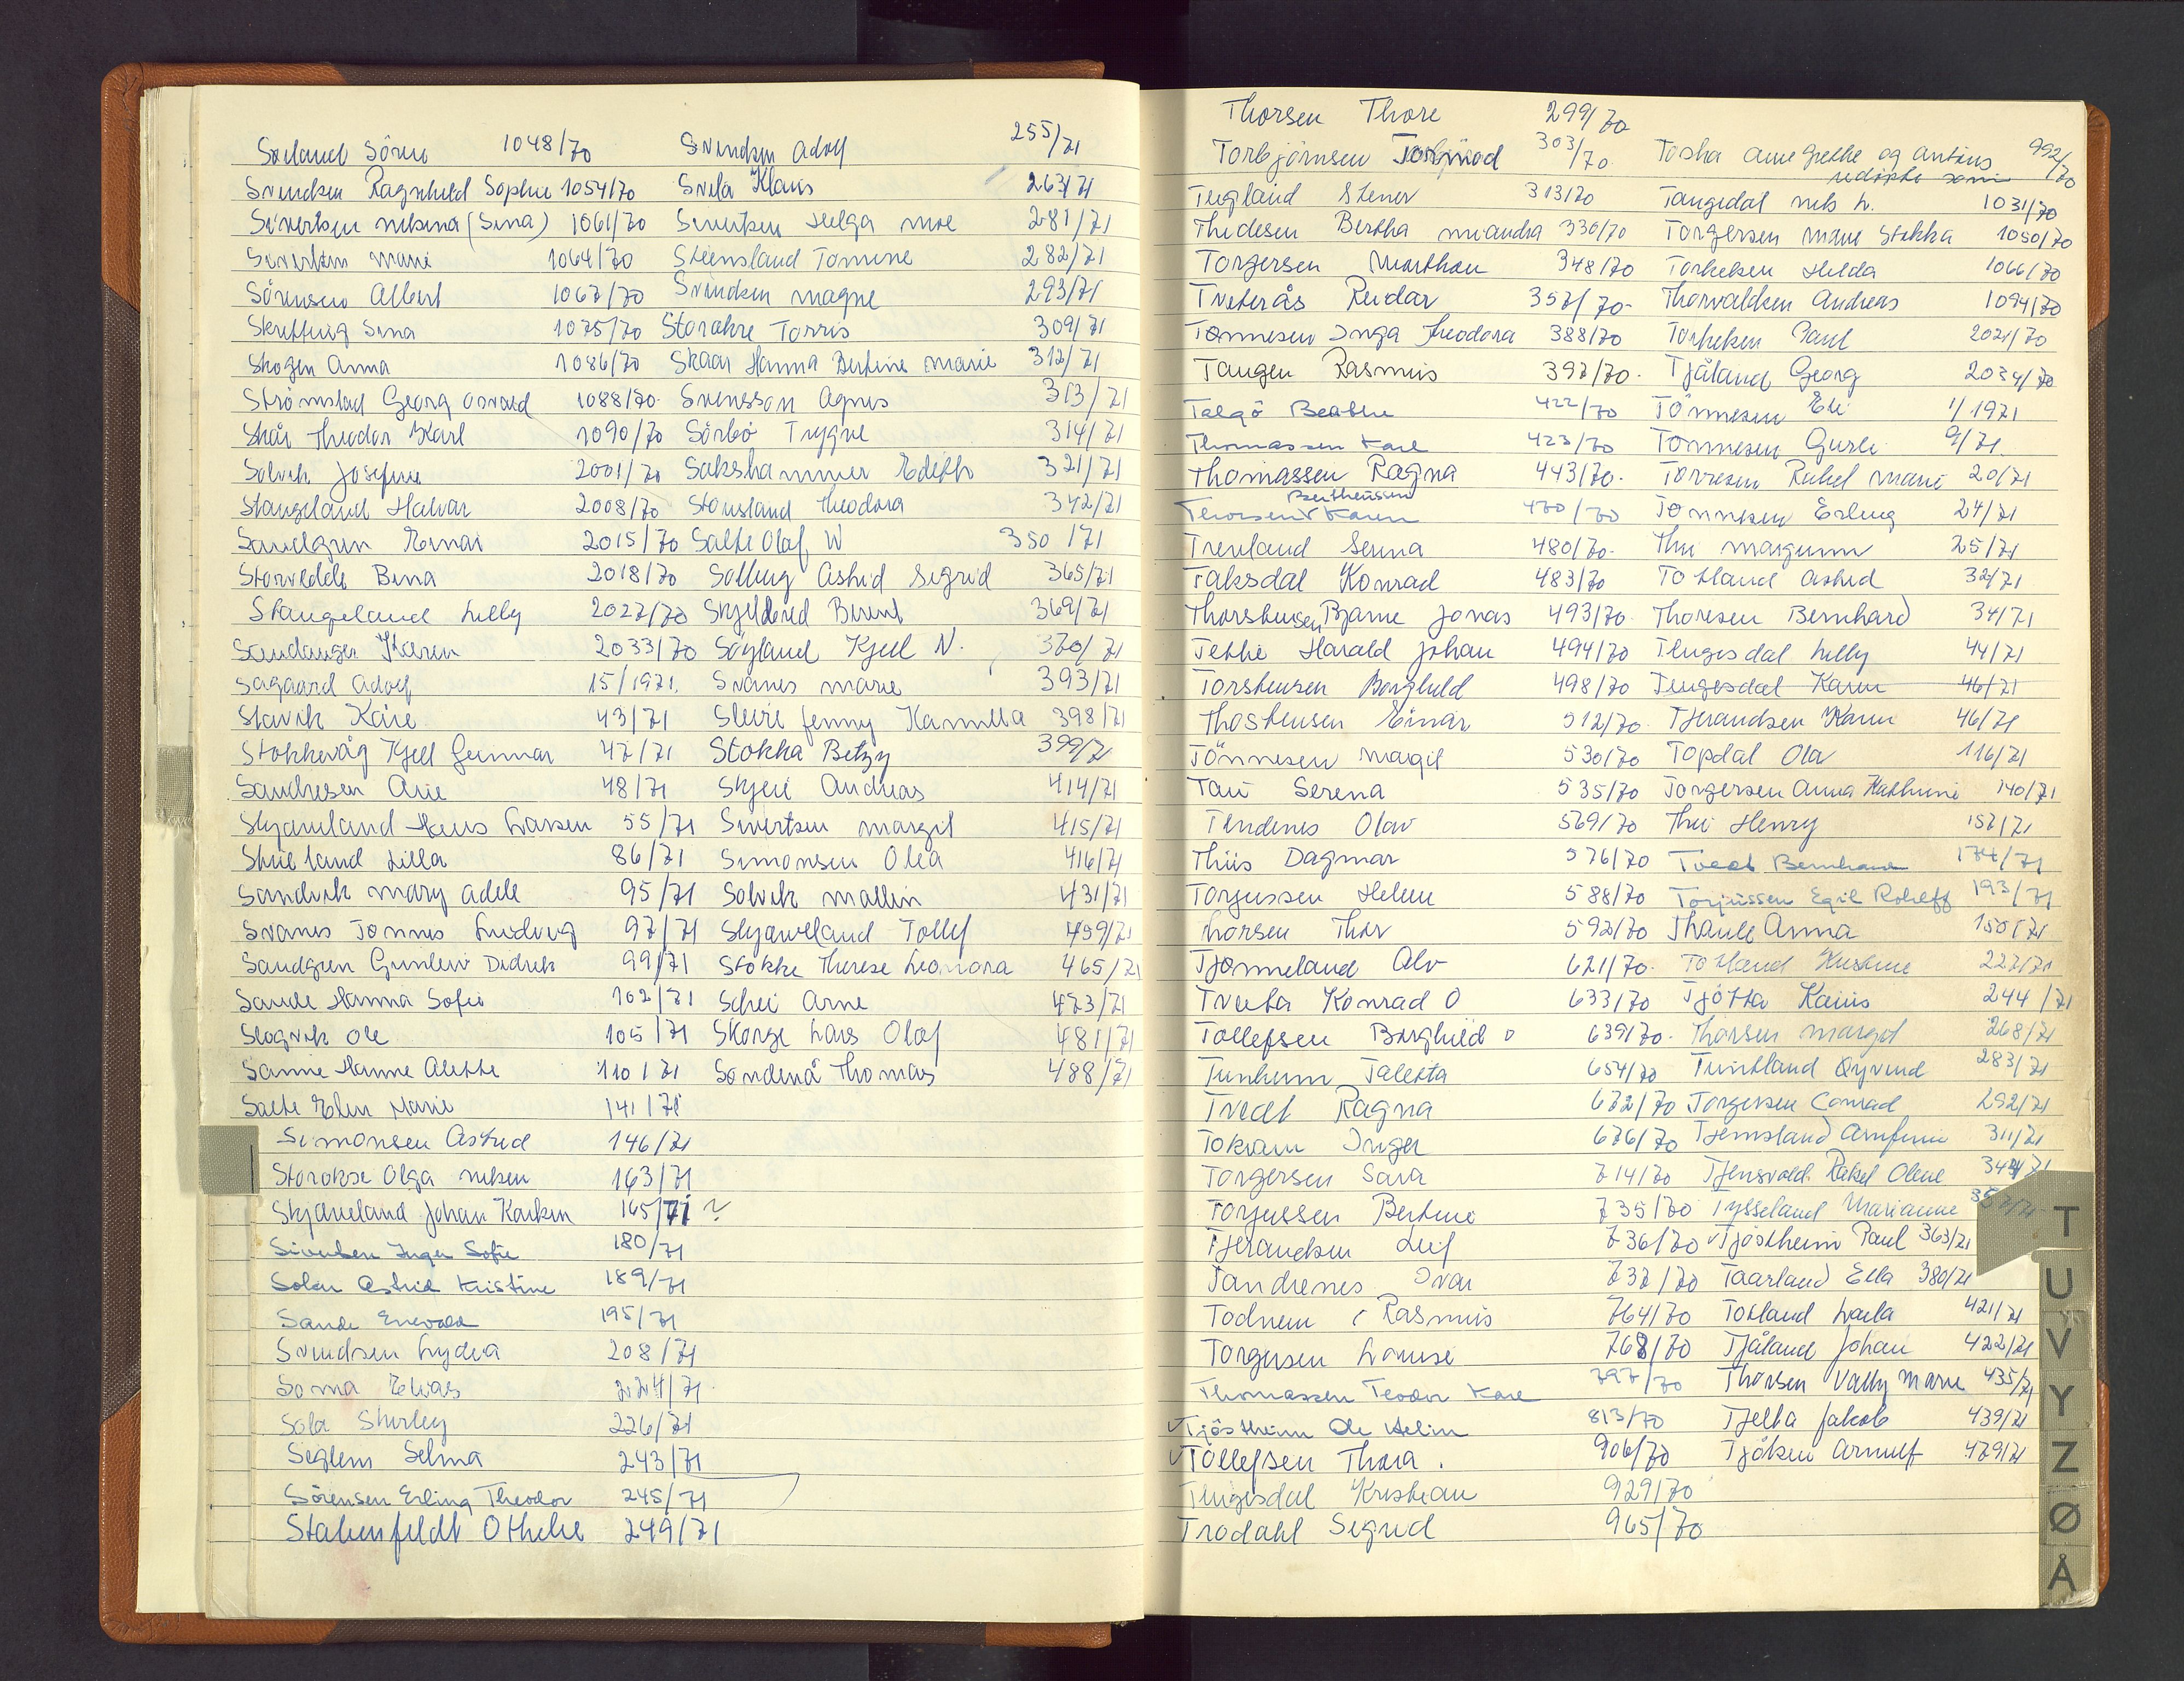 Søiland Sören 1048/70
Svendsen Ragnhild Sophie 1054/70
Sivertsen Nilsina (Sina) 1061/70
Sivertsen Marie 1064/70
Sörensen Albert 1067/70
Skretting Sina 1075/70
Skogen Anna 1086/70
Strömstad Georg Osvald 1088/70
Skår Theodor Karl 1090/70
Solvik Josefine 2001/70
Stangeland Halvar 2008/70
Sandgren Einar 2015/70
Storvedde Bina 2018/70
Stangeland Lilly 2027/70
Sandanger Karen 2033/70
Sagaard Adolf 15/1971
Stavik Kåre 43/71
Stokkevåg Kjell Gunnar 47/71
Sandresen Arie 48/71
Skjæveland Hans Larsen 55/71
Skieland Lilla 86/71
Sandvik Mary Adele 95/71
Svanes Tønnes Ludvig 97/71
Sandgren Gunleiv Didrik 99/71
Sande Hanna Sofie 102/71
Slogvik Ole 105/71
Sanne Hanne Alette 110/71
Salte Elen Marie 141/71
Simonsen Astrid 146/71
Storakse Olga Nilsen 163/71
Skjæveland Johan Karken 165/71 ?
Sivertsen Inga Sofie 180/71
Solen Astrid Kristine 189/71
Sande Enevald 195/71
Svendsen Lydia 208/71
Soma Elias 224/71
Sola Shirley 226/71
Seglem Selma 243/71
Sörensen Erling Theodor 245/71
Stakenfeldt Othelie 249/71
Svendsen Adolf 255/71
Svela Klaus 263/71
Sivertsen Helga Moe 281/71
Steensland Tomine 282/71
Svendsen Magne 293/71
Storakre Torris 309/71
Skaar Hanna Bertine Marie 312/71
Svensson Agnes 313/71
Sörbö Trygve 314/71
Sakshammer Edith 321/71
Stousland Theodora 342/71
Salte Olaf W 350/71
Solberg Astrid Sigrid 365/71
Skjelbred Bernt 369/71
Søyland Kjell N. 370/71
Svanes Marie 393/71
Sleire Jenny Kamilla 398/71
Stokka Betzy 399/71
Skjeie Andreas 414/71
Sivertsen Margit 415/71
Simonsen Olea 416/71
Solvik Mallin 431/71
Skjæveland Tollef 459/71
Stokke Therese Leonora 465/71
Schei Arne 473/71
Skorge Lars Olaf 481/71
Søndenå Thomas 488/71
Thorsen Thore 299/70
Torbjörnsen Tormod 303/70
Tegland Stener 313/70
Thidesen Bertha Miandra 330/70
Torgersen Marthon 348/70
Tveterås Reidar 357/70
Tønnesen Inga Theodora 388/70
Tangen Rasmus 397/70
Talgö Beathe 422/70
Thomassen Karl 423/70
Thomassen Ragna 443/70
Bertheussen
Thorsen Karen 470/70
Treuland Serina 480/70
Taksdal Konrad 483/70
Thorstensen Bjarne Jonas 493/70
Tekke Harald Johan 494/70
Torstensen Borghild 498/70
Thorstensen Einar 512/70
Tönnesen Margit 530/70
Tau Serena 535/70
Tendenes Olav 569/70
Thiis Dagmar 576/70
Torjussen Helene 588/70
Thorsen Thor 592/70
Tjømeland Alv 621/70
Tveita Konrad O 633/70
Tollefsen Borghild 639/70
Tunheim Taletta 654/70
Tvedt Ragna 672/70
Tokvam Inger 676/70
Torgersen Sara 714/70
Torjussen Bertine 735/70
Tjerandsen Leif 736/70
Tandrenes Ivar 737/70
Todnem Rasmus 764/70
Torgersen Lovise 768/70
Thomassen Teodor Karl 797/70
Tjöstheim Ole Helim 813/70
Tollefsen Thora 906/70
Tengesdal Kristian 929/70
Trodahl Sigrid 965/70
Toska Anne Grethe og Antons 992/70
Tangedal Nils L. 1031/70
Torgersen Marie Stokka 1050/70
Torkelsen Hilda 1066/70
Thorvaldsen Andreas 1094/70
Torkelsen Paul 2021/70
Tjåland Georg 2034/70
Tönnesen Eli 1/1971
Tønnesen Gurli 9/71
Torresen Rakel Marie 20/71
Tønnesen Erling 24/71
Thu Margunn 25/71
Totland Astrid 32/71
Thoresen Bernhard 34/71
Tengesdal Lilly 44/71
Tengesdal Karen 46/71
Tjerandsen Karen 46/71
Topdal Ola 116/71
Torgersen Anna Kathrine 140/71
Thu Henry 157/71
Tvedt Bernhard 174/71
Torjussen Egil Roleff 193/71
Thaule Anna 150/71
Totland Kristine 227/71
Tjøtta Kaius 244/71
Thorsen Margot 268/71
Tuntland Øyvind 283/71
Torgersen Conrad 292/71
Tjemsland Arnfinn 311/71
Tjensvold Rakel Oline 344/71
Tysseland Marianne 357/71
Tjöstheim Paul 363/71
Taarland Ella 380/71
Totland Laila 421/71
Tjåland Johan 422/71
Thorsen Vally Marie 435/71
Tjelta Jakob 439/71
Tjöken Arnulf 479/71
T
U
V
Y
Z
Ø
Å